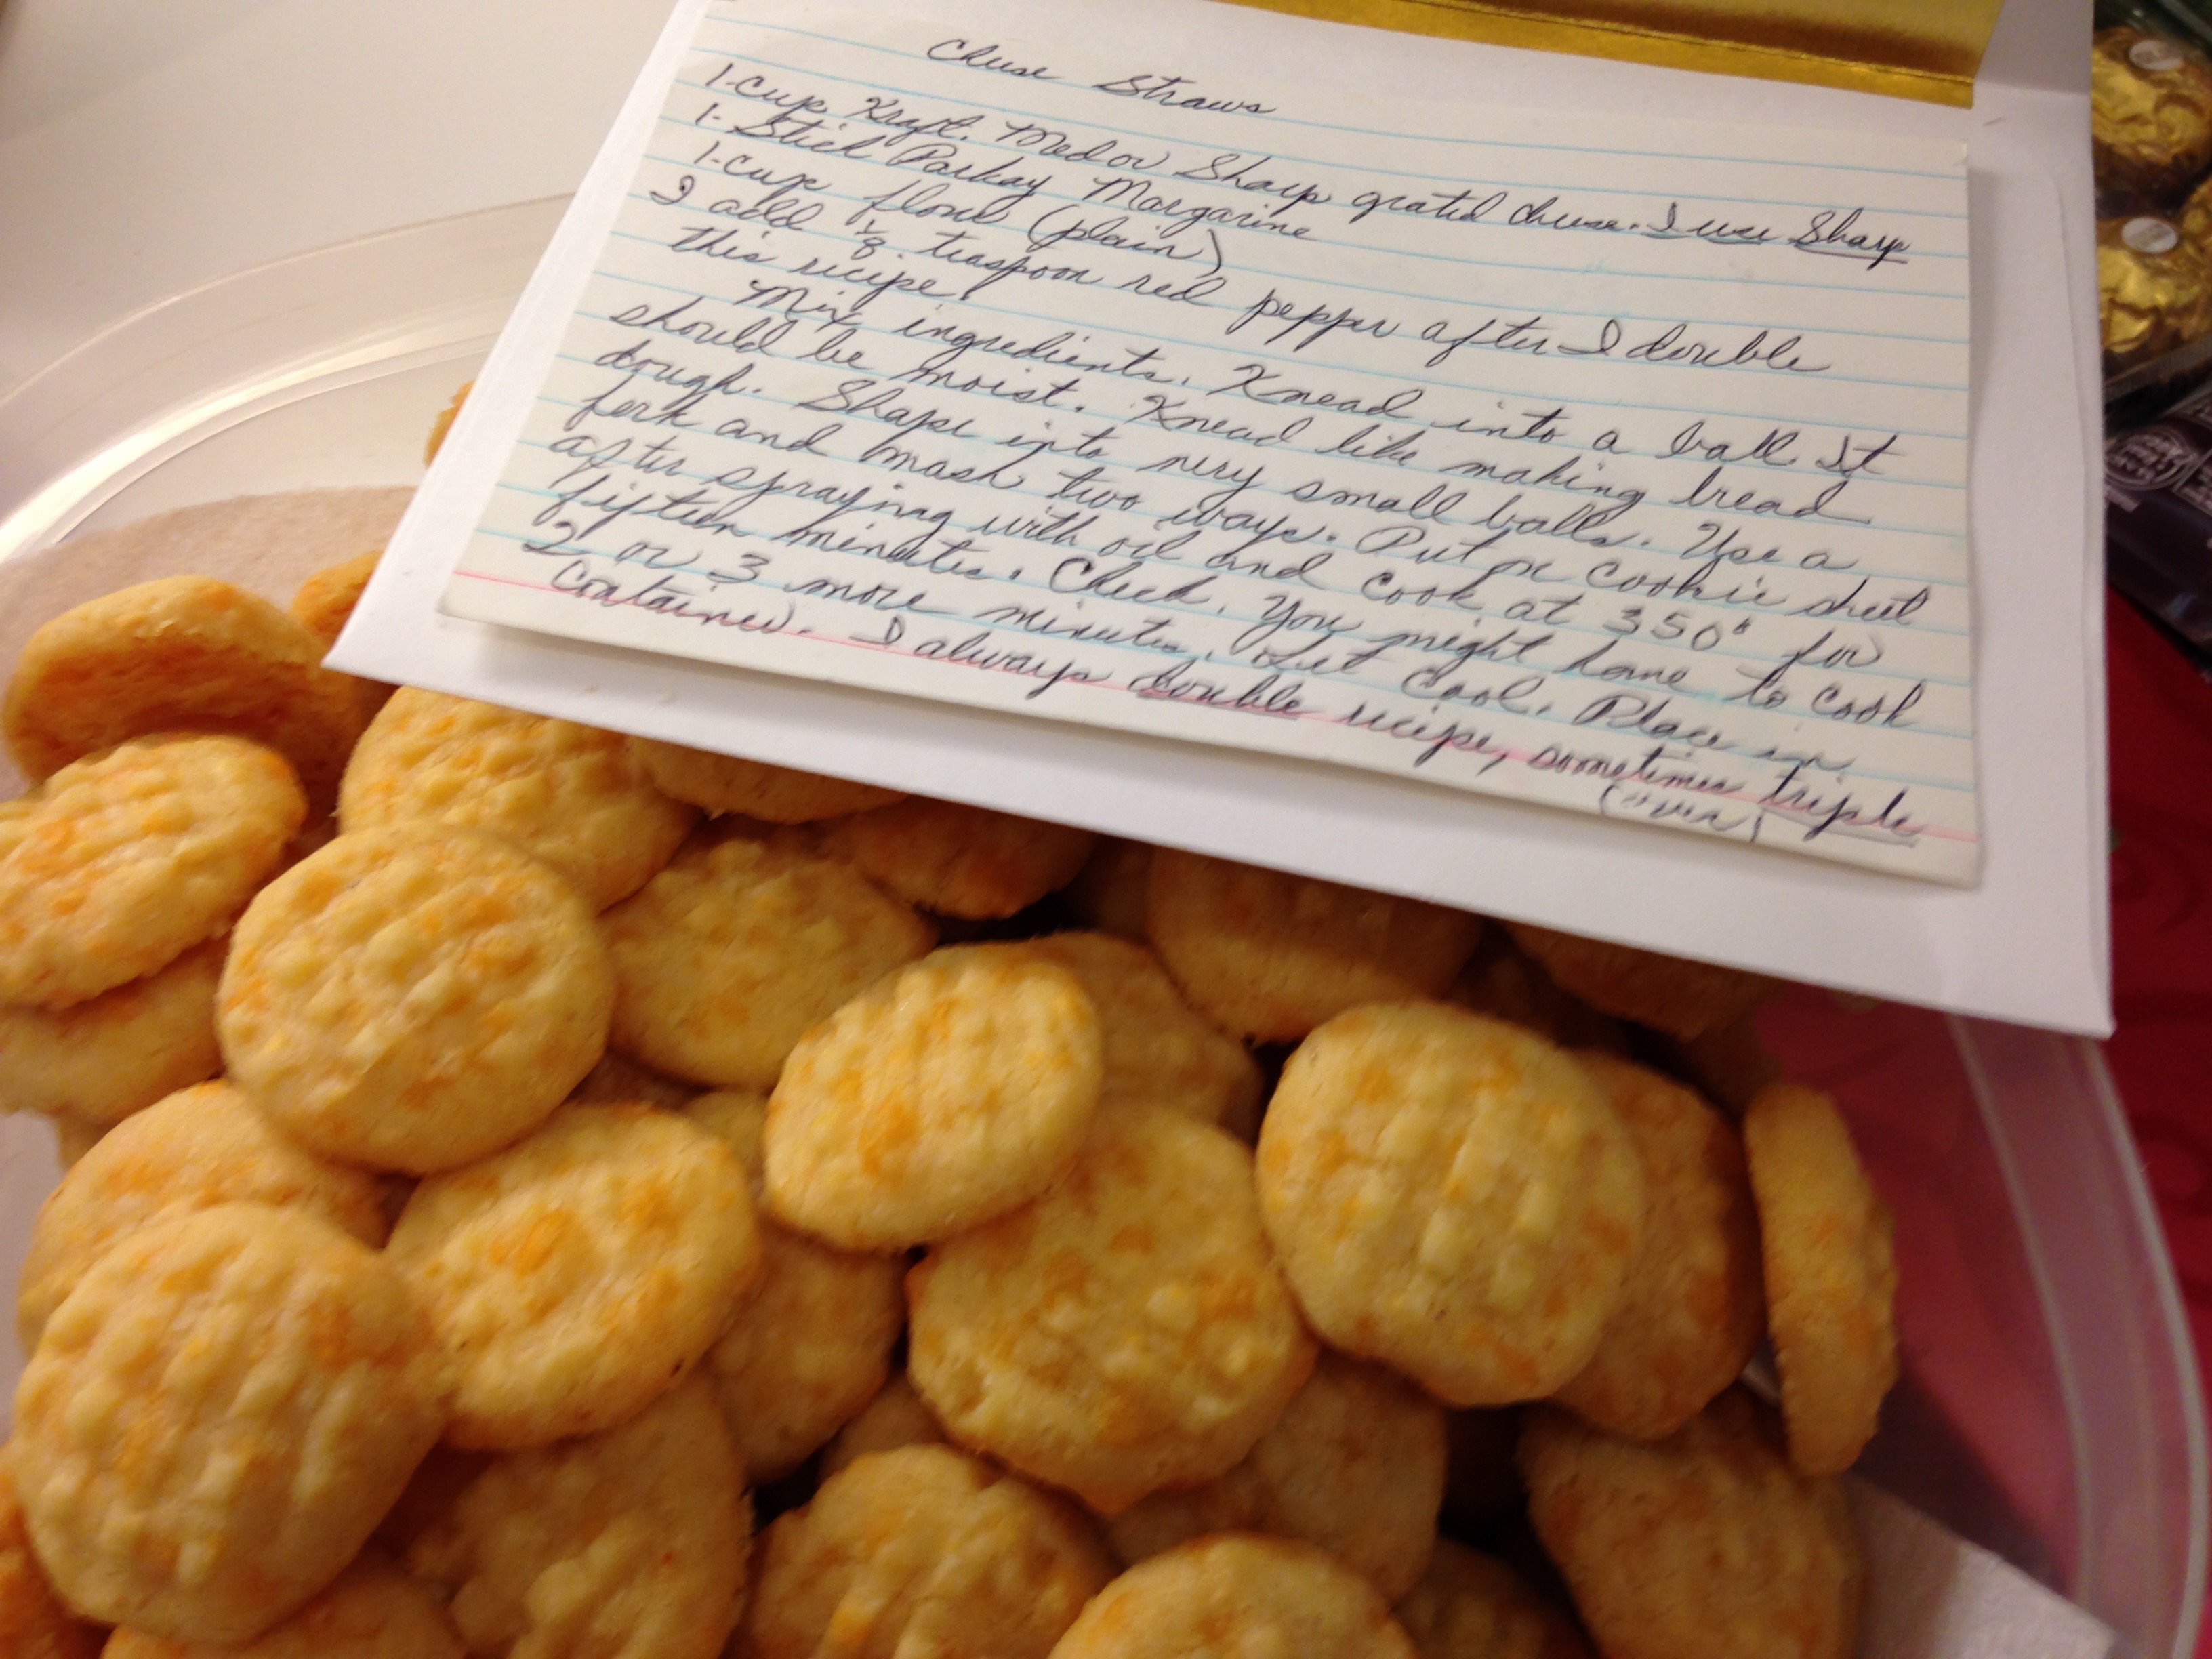 Cheese Straws
1-cup Kraft. Med or Sharp grated cheese. I use Sharp
1- Stick Parkay Margarine
1-cup flour (plain)
I add 1/8 teaspoon red pepper after I double
this recipe.
Mix ingredients. Knead into a ball. It
should be moist. Knead like making bread
dough. Shape into very small balls. Use a
fork and mash two ways. Put on cookie sheet
after spraying with oil and cook at 350° for
fifteen minutes. Check. You might have to cook
2 or 3 more minutes. Let cool. Place in
container. I always double recipe, sometimes triple
(over)